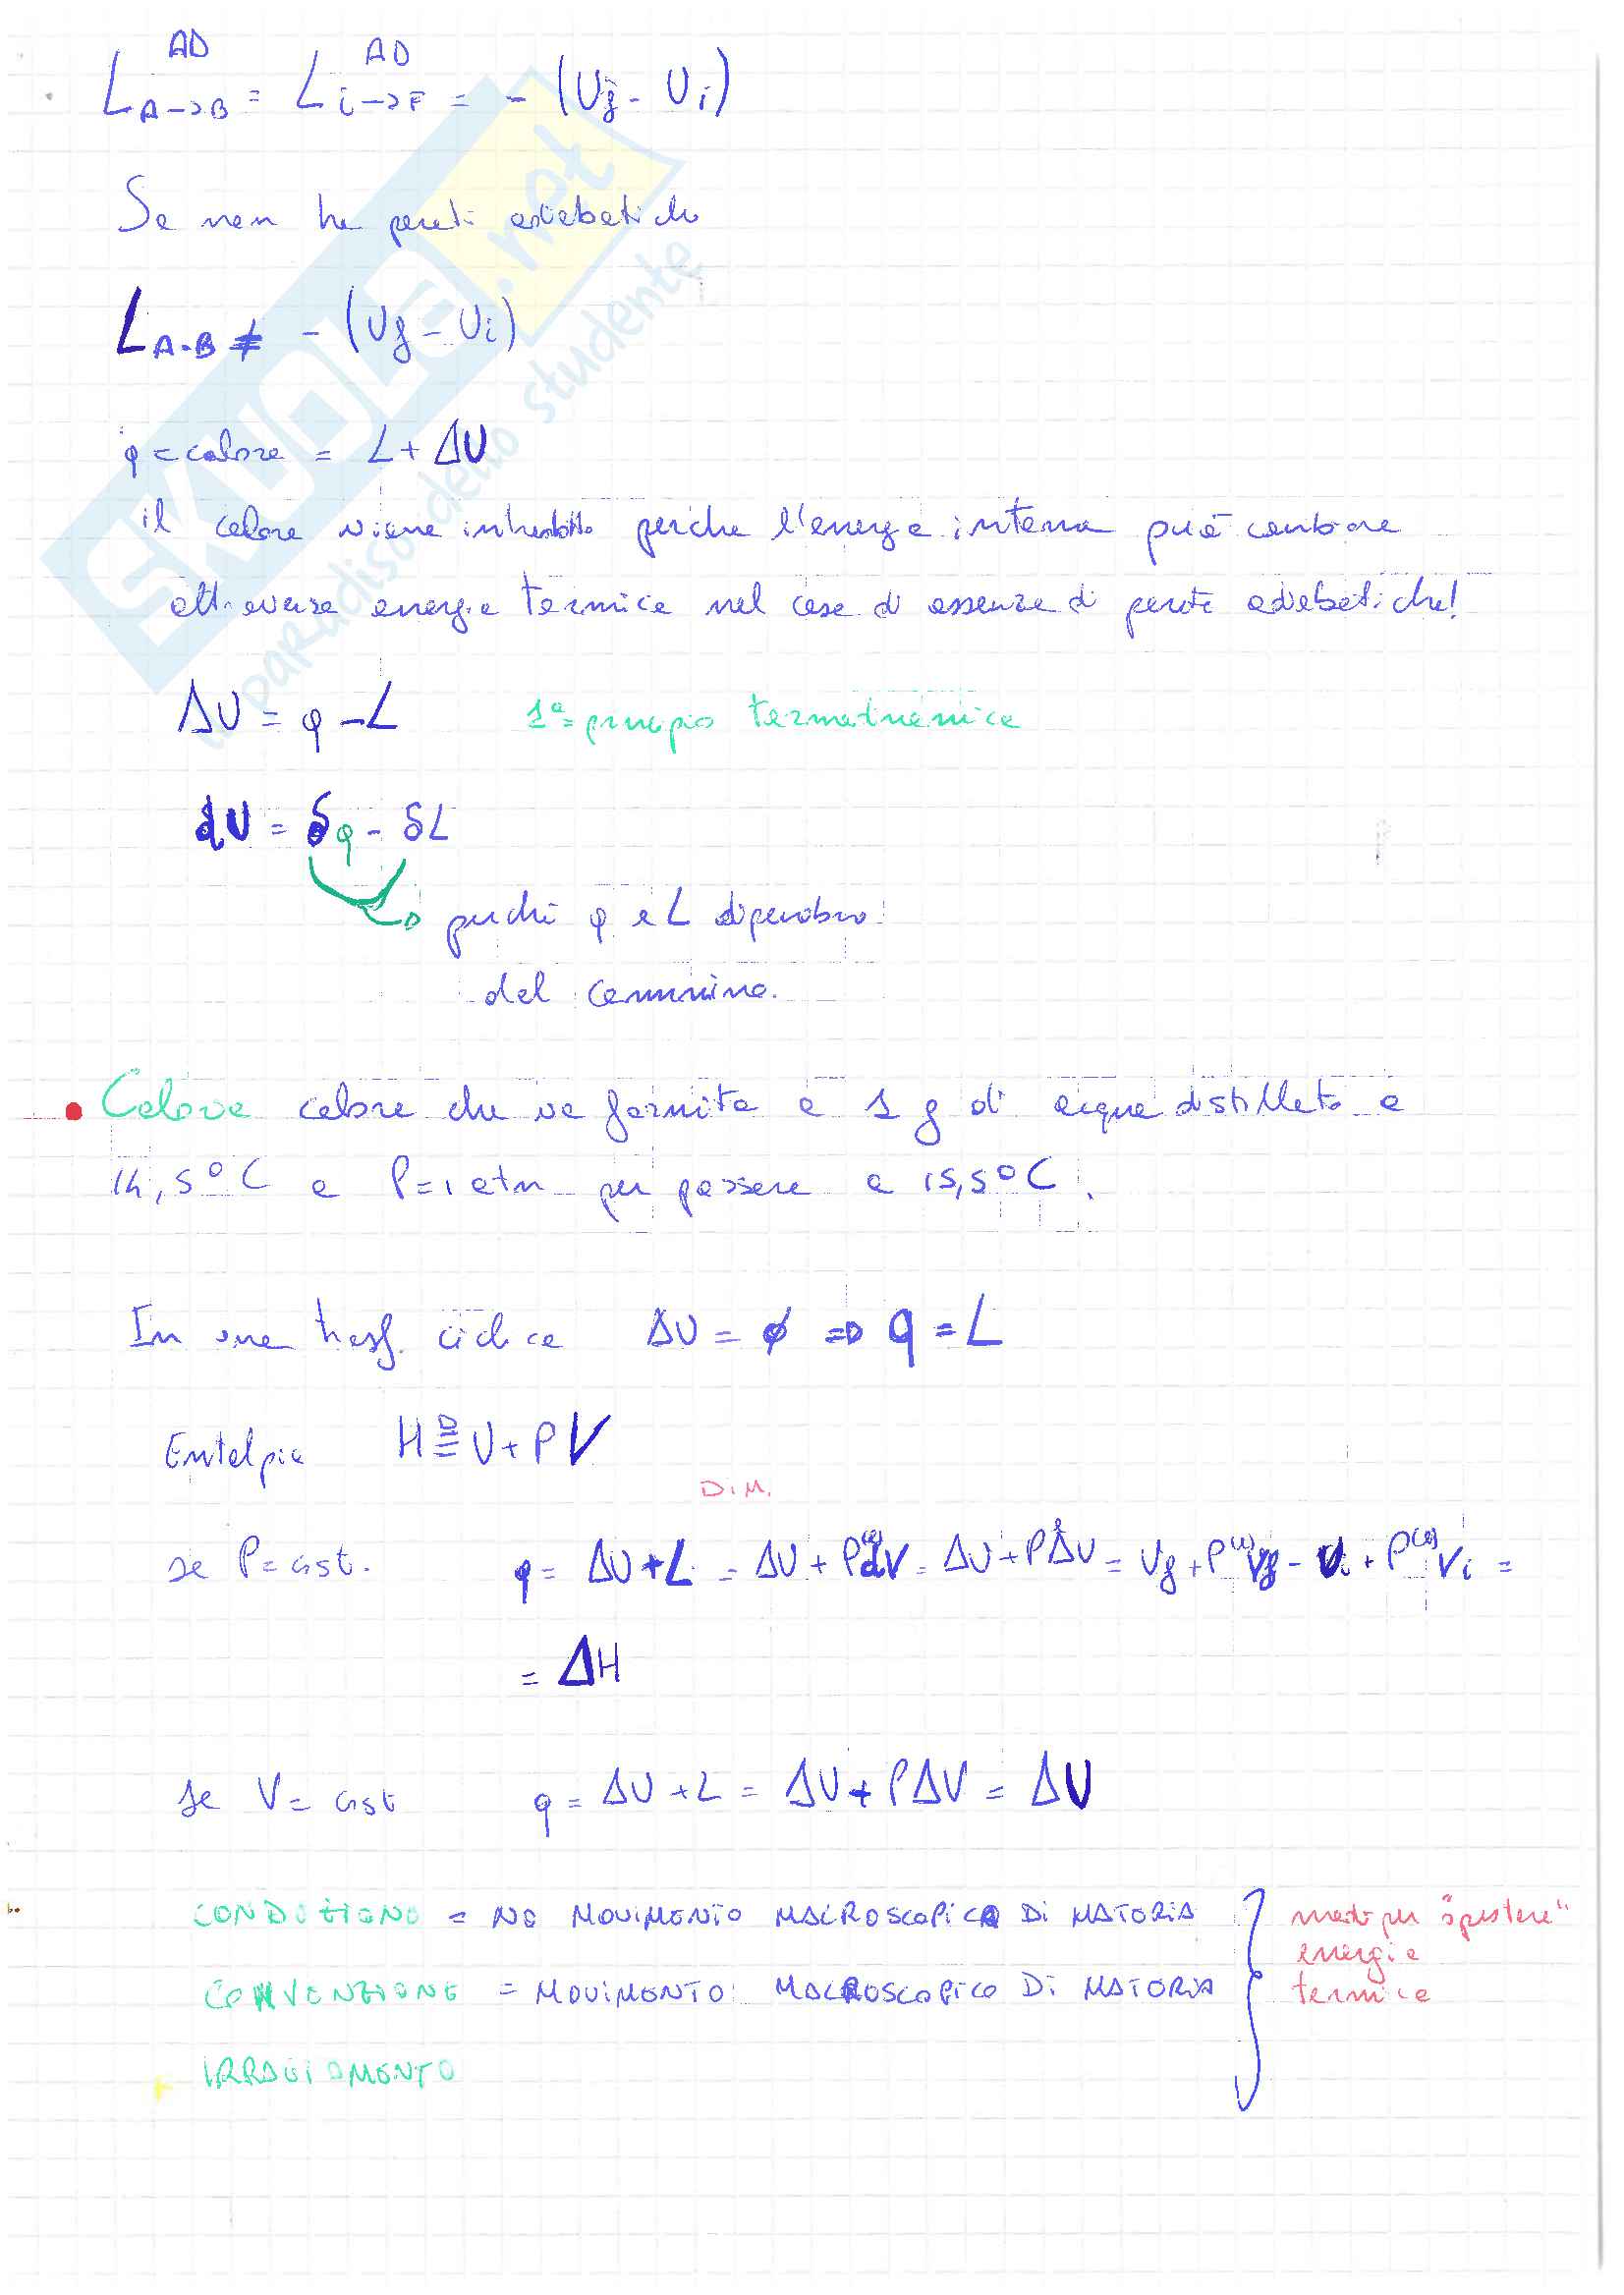 L_{A->B}^{AD} = L_{i->F}^{AD} = - (U_f - U_i)
Se non ha pareti adiabatiche
L_{A-B} ≠ - (U_f - U_i)
q = calore = L + ΔU
il calore viene introdotto perche l'energia interna può cambiare
attraverso energia termica nel caso di assenza di pareti adiabatiche!
ΔU = q - L 1° principio termodinamica
dU = δq - δL
perché q e L dipendono
del cammino.
• Caloria calore che va fornita a 1 g di acqua distillata a
14,5°C a P=1 atm per passare a 15,5°C.
In una trasf. ciclica ΔU = ø => q = L
Entalpia H ≝ U + PV
DIM.
se P = cost. q = ΔU + L = ΔU + P^{(e)}dV = ΔU + PΔU = U_f + P^{(e)}V_f - U_i + P^{(e)}V_i =
= ΔH
se V = cost q = ΔU + L = ΔU + PΔV = ΔU
CONDUZIONE = NO MOVIMENTO MACROSCOPICO DI MATERIA
CONVENZIONE = MOVIMENTO MACROSCOPICO DI MATERIA
IRRAGIAMENTO
modi per "spostare"
energia
termica
SKUOLA.net
il paradiso dello studente